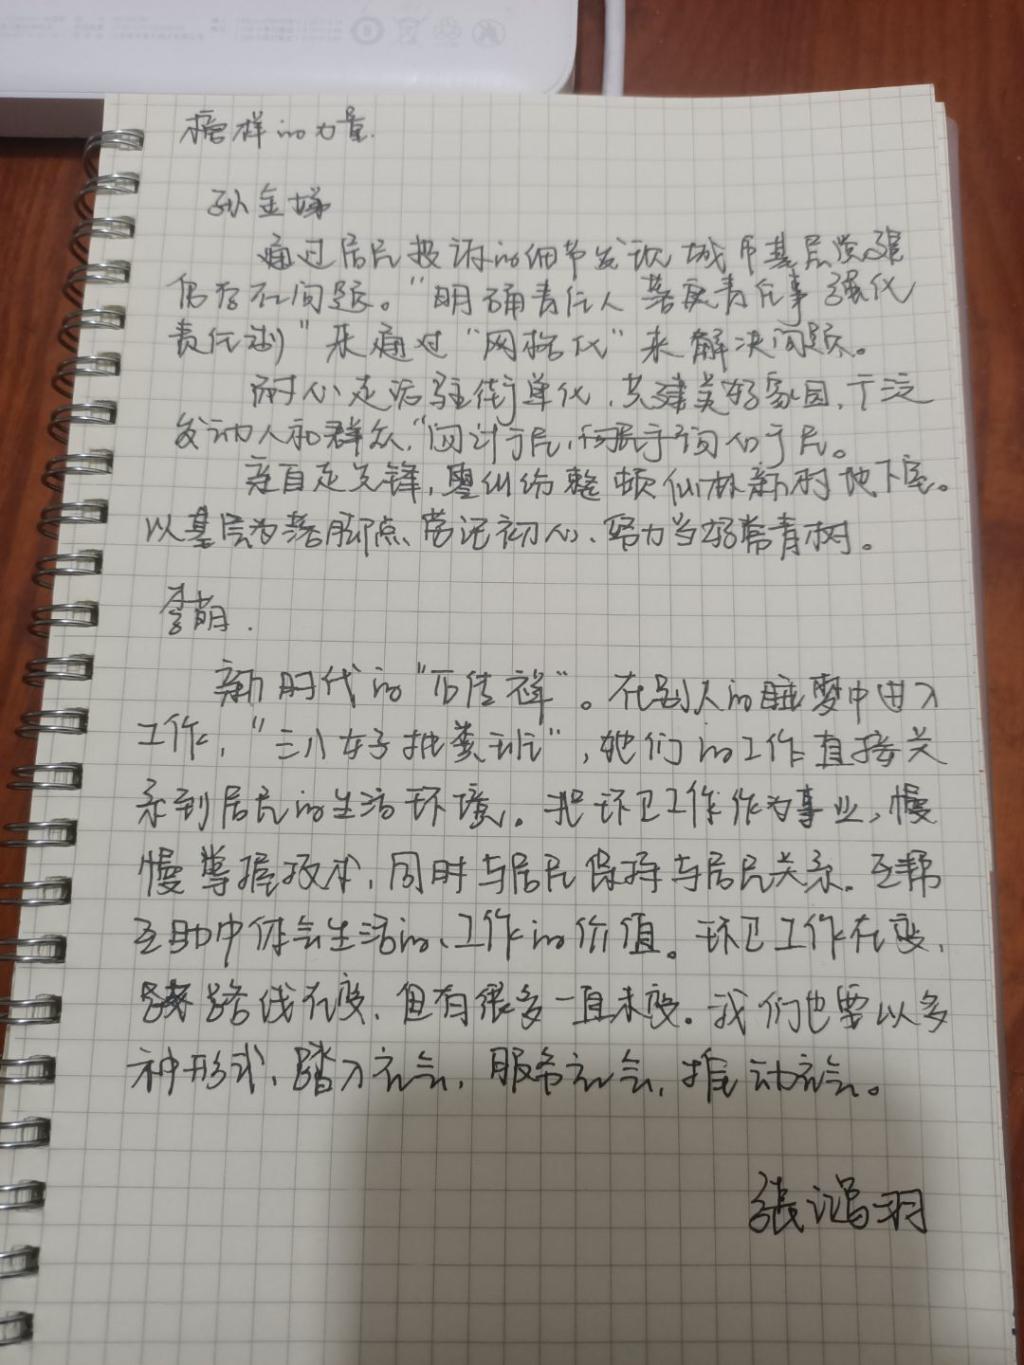 榜样的力量.
孙金娣
通过居民投诉的细节发现城市基层发展
仍存在问题。"明确责任人 落实责任事 强化
责任制" 来通过"网格化"来解决问题。
耐心走访驻街单位,共建美好家园,广泛
发动人和群众,"问计于民,问需于民,问心于民。
亲自走先锋, 整顿仙林新村地下室。
以基层为落脚点,常记初心、努力当好常青树。
李萌.
新时代的"时传祥"。在别人的睡梦中进入
工作,"三八女子抽粪班",她们的工作直接关
系到居民的生活环境。把环卫工作作为事业,慢
慢掌握技术,同时与居民保持与居民关系.互帮
互助中体会生活的、工作的价值。环卫工作在变,
路线在变,但有很多一直未变。我们也要以多
种形式,踏入社会,服务社会,推动社会。
张鸿羽